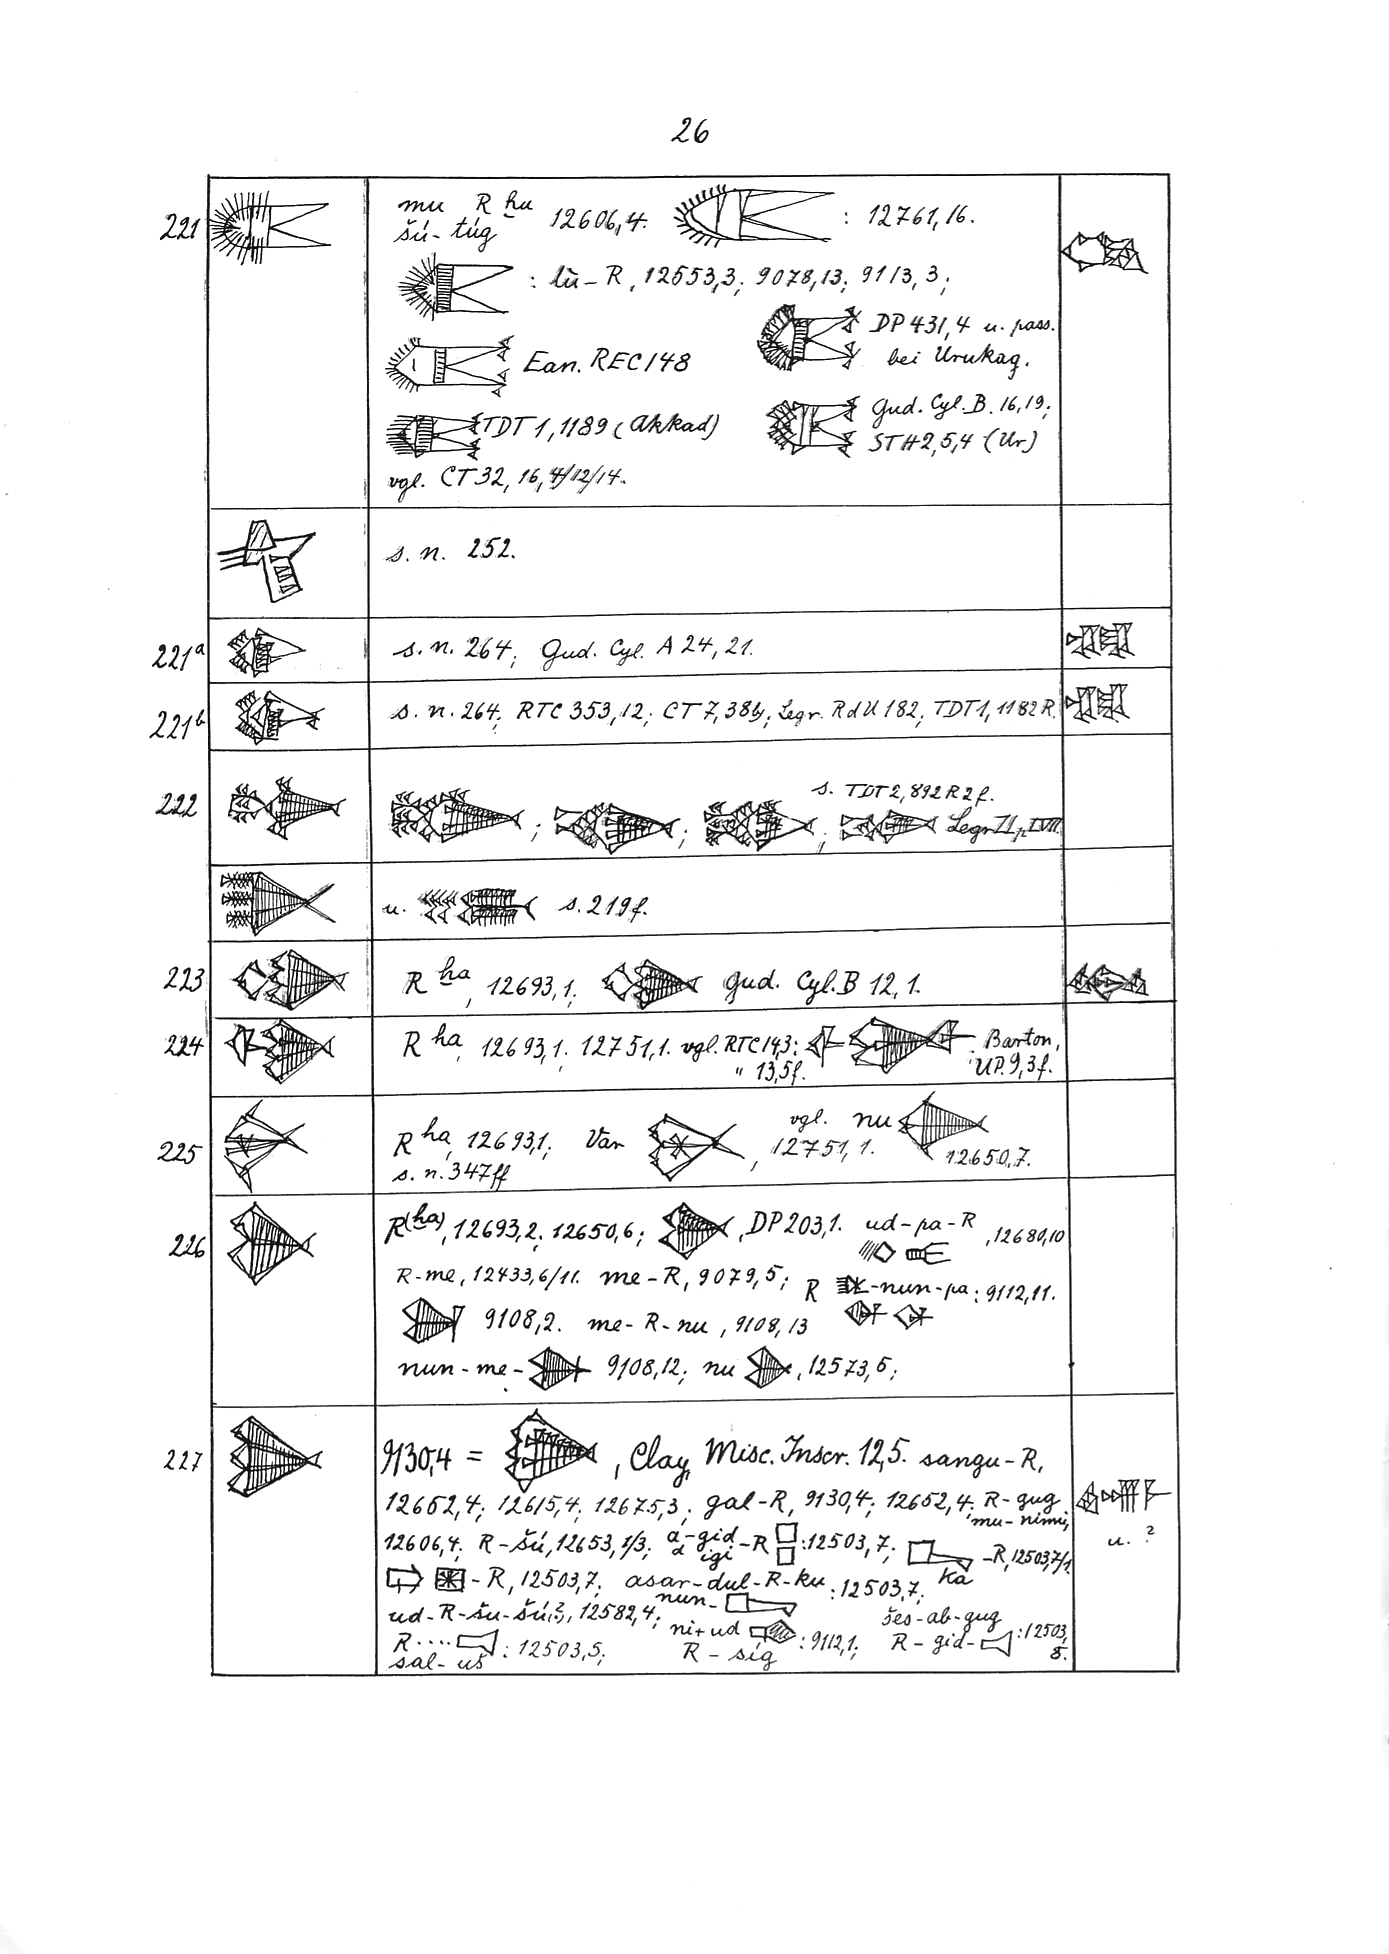 26
221
mu R ḫu 12606,4. : 12761,16.
šú-túg
: lù-R, 12553,3; 9078,13; 9113,3;
DP 431,4 u. pass.
bei Urukag.
Ean. REC 148
Gud. Cyl. B. 16,19;
TDT 1, 1189 (Akkad)
STH 2,5,4 (Ur)
vgl. CT 32, 16, 4/12/14.
s. n. 252.
221a s. n. 264; Gud. Cyl. A 24, 21.
221b s. n. 264; RTC 353,12; CT 7, 38b; Legr. RdU 182; TDT 1, 1182 R.
s. TDT 2, 892 R 2 f.
222 ; ; ;
u. s. 219 f.
223 R ḫa, 12693,1; Gud. Cyl. B 12,1.
224 R ḫa, 12693,1. 12751,1. vgl. RTC 14,3: Barton,
" 13,5 f. UP. 9, 3 f.
225 R ḫa, 12693,1; Var , vgl. nu
12751,1. 12650,7.
s. n. 347 ff
226 R (ḫa), 12693,2; 12650,6; , DP 203,1. ud-pa-R , 12680,10
R-me, 12433,6/11. me-R, 9079,5; R -nun-pa: 9112,11.
9108,2. me-R-nu, 9108,13
nun-me- 9108,12; nu , 12573,5;
227 9130,4 = , Clay, Misc. Inscr. 12,5. sangu-R,
12652,4; 12615,4; 12675,3; gal-R, 9130,4; 12652,4. R-gug
mu-nimi,
12606,4; R-šú, 12653,1/3; a-gid-R : 12503,7; -R, 12503,7/1
a igi
u. ?
-R, 12503,7; asar-dul-R-ku: 12503,7; ka
ud-R-šu-šú(?), 12582,4; nun- šeš-ab-gug
ni+ud
R .... : 12503,5; R-sig : 9112,1; R-gid- : 12503,
8.
sal-uš